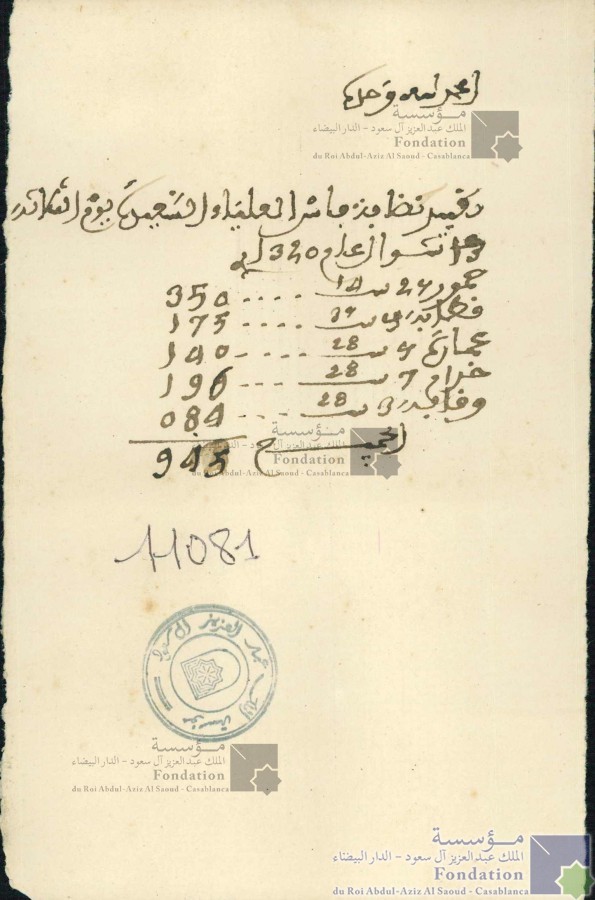 الحمد لله وحده
مؤسسة
الملك عبد العزيز آل سعود - الدار البيضاء
Fondation
du Roi Abdul-Aziz Al Saoud - Casablanca
تقييد العلياء يوم الثلاثاء
13 شوال عام 1320
حمور 24 ت 14 .... 350
ت .... 175
عمارة ت 28 .... 140
خدام 7 ت 28 .... 196
3 ت 28 .... 084
الجميع 945
مؤسسة
الملك عبد العزيز آل سعود - الدار البيضاء
Fondation
du Roi Abdul-Aziz Al Saoud - Casablanca
11081
مؤسسة الملك عبد العزيز ال سعود
مؤسسة
الملك عبد العزيز آل سعود - الدار البيضاء
Fondation
du Roi Abdul-Aziz Al Saoud - Casablanca
مؤسسة
الملك عبد العزيز آل سعود - الدار البيضاء
Fondation
du Roi Abdul-Aziz Al Saoud - Casablanca